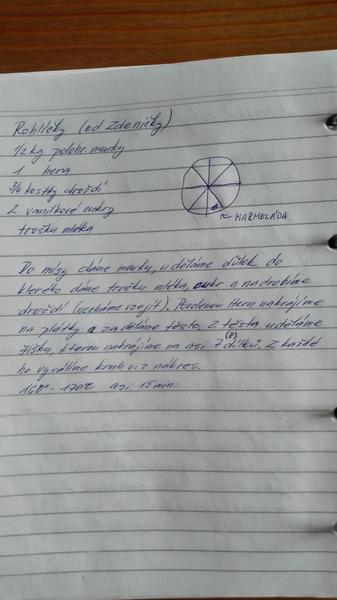 Rohlíčky (od Zdeničky)
1/2 kg polohr. mouky
1 hera
3/4 kostky droždí
2 vanilkové cukry
trošku mléka
MARMELÁDA
Do mísy dáme mouku, uděláme důlek do
kterého dáme trošku mléka, cukr a nadrobíme
droždí (necháme vzejít). Povolenou Heru nakrájíme
na plátky a zaděláme těsto. Z těsta uděláme
šišku, kterou nakrájíme na asi 7 (8) dílků. Z každé
ho vyválíme kruh viz nákres.
160° - 170° asi 15 min.